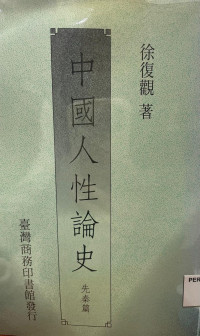 徐復觀 著
中國人性論史
先秦篇
臺灣商務印書館發行
PER